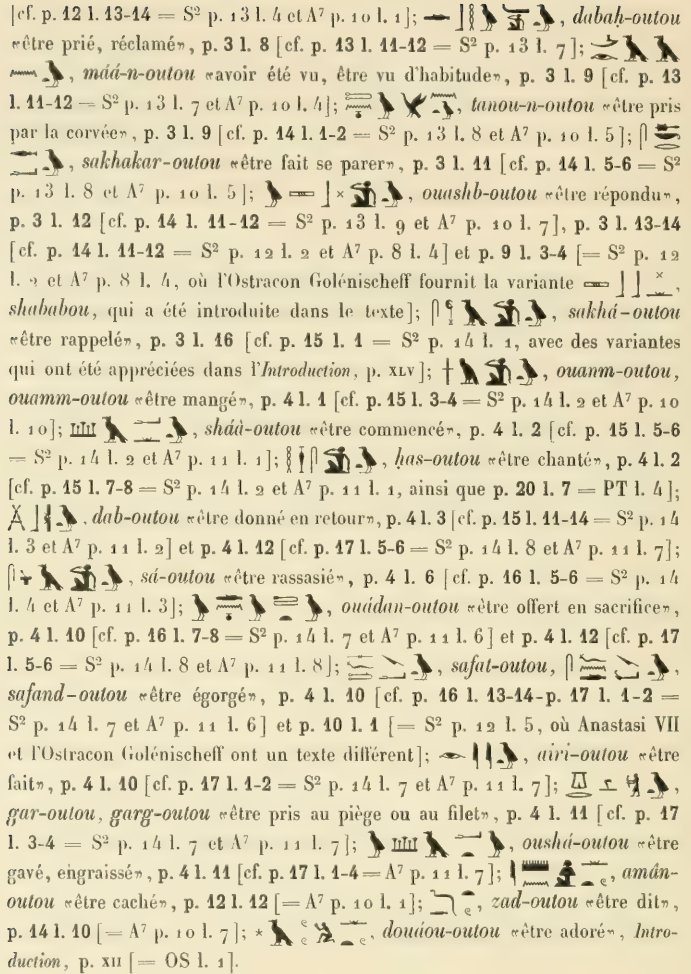 [cf. p. 12 l. 13-14 = S² p. 13 l. 4 et A⁷ p. 10 l. 1]; dabaḥ-outou
«être prié, réclamé», p. 3 l. 8 [cf. p. 13 l. 11-12 = S² p. 13 l. 7];
máá-n-outou «avoir été vu, être vu d'habitude», p. 3 l. 9 [cf. p. 13
l. 11-12 = S² p. 13 l. 7 et A⁷ p. 10 l. 4]; tanou-n-outou «être pris
par la corvée», p. 3 l. 9 [cf. p. 14 l. 1-2 = S² p. 13 l. 8 et A⁷ p. 10 l. 5];
sakhakar-outou «être fait se parer», p. 3 l. 11 [cf. p. 14 l. 5-6 = S²
p. 13 l. 8 et A⁷ p. 10 l. 5]; ouashb-outou «être répondu»,
p. 3 l. 12 [cf. p. 14 l. 11-12 = S² p. 13 l. 9 et A⁷ p. 10 l. 7], p. 3 l. 13-14
[cf. p. 14 l. 11-12 = S² p. 12 l. 2 et A⁷ p. 8 l. 4] et p. 9 l. 3-4 [= S² p. 12
l. 2 et A⁷ p. 8 l. 4, où l'Ostracon Golénischeff fournit la variante
shababou, qui a été introduite dans le texte]; sakhá-outou
«être rappelé», p. 3 l. 16 [cf. p. 15 l. 1 = S² p. 14 l. 1, avec des variantes
qui ont été appréciées dans l'Introduction, p. XLV]; ouanm-outou,
ouamm-outou «être mangé», p. 4 l. 1 [cf. p. 15 l. 3-4 = S² p. 14 l. 2 et A⁷ p. 10
l. 10]; sháà-outou «être commencé», p. 4 l. 2 [cf. p. 15 l. 5-6
= S² p. 14 l. 2 et A⁷ p. 11 l. 1]; ḥas-outou «être chanté», p. 4 l. 2
[cf. p. 15 l. 7-8 = S² p. 14 l. 2 et A⁷ p. 11 l. 1, ainsi que p. 20 l. 7 = PT l. 4];
dab-outou «être donné en retour», p. 4 l. 3 [cf. p. 15 l. 11-14 = S² p. 14
l. 3 et A⁷ p. 11 l. 2] et p. 4 l. 12 [cf. p. 17 l. 5-6 = S² p. 14 l. 8 et A⁷ p. 11 l. 7];
sá-outou «être rassasié», p. 4 l. 6 [cf. p. 16 l. 5-6 = S² p. 14
l. 4 et A⁷ p. 11 l. 3]; ouádan-outou «être offert en sacrifice»,
p. 4 l. 10 [cf. p. 16 l. 7-8 = S² p. 14 l. 7 et A⁷ p. 11 l. 6] et p. 4 l. 12 [cf. p. 17
l. 5-6 = S² p. 14 l. 8 et A⁷ p. 11 l. 8]; safat-outou,
safand-outou «être égorgé», p. 4 l. 10 [cf. p. 16 l. 13-14-p. 17 l. 1-2 =
S² p. 14 l. 7 et A⁷ p. 11 l. 6] et p. 10 l. 1 [= S² p. 12 l. 5, où Anastasi VII
et l'Ostracon Golénischeff ont un texte différent]; airi-outou «être
fait», p. 4 l. 10 [cf. p. 17 l. 1-2 = S² p. 14 l. 7 et A⁷ p. 11 l. 7];
gar-outou, garg-outou «être pris au piège ou au filet», p. 4 l. 11 [cf. p. 17
l. 3-4 = S² p. 14 l. 7 et A⁷ p. 11 l. 7]; oushá-outou «être
gavé, engraissé», p. 4 l. 11 [cf. p. 17 l. 1-4 = A⁷ p. 11 l. 7]; amân-
outou «être caché», p. 12 l. 12 [= A⁷ p. 10 l. 1]; zad-outou «être dit»,
p. 14 l. 10 [= A⁷ p. 10 l. 7]; douáou-outou «être adoré», Intro-
duction, p. XII [= OS l. 1].